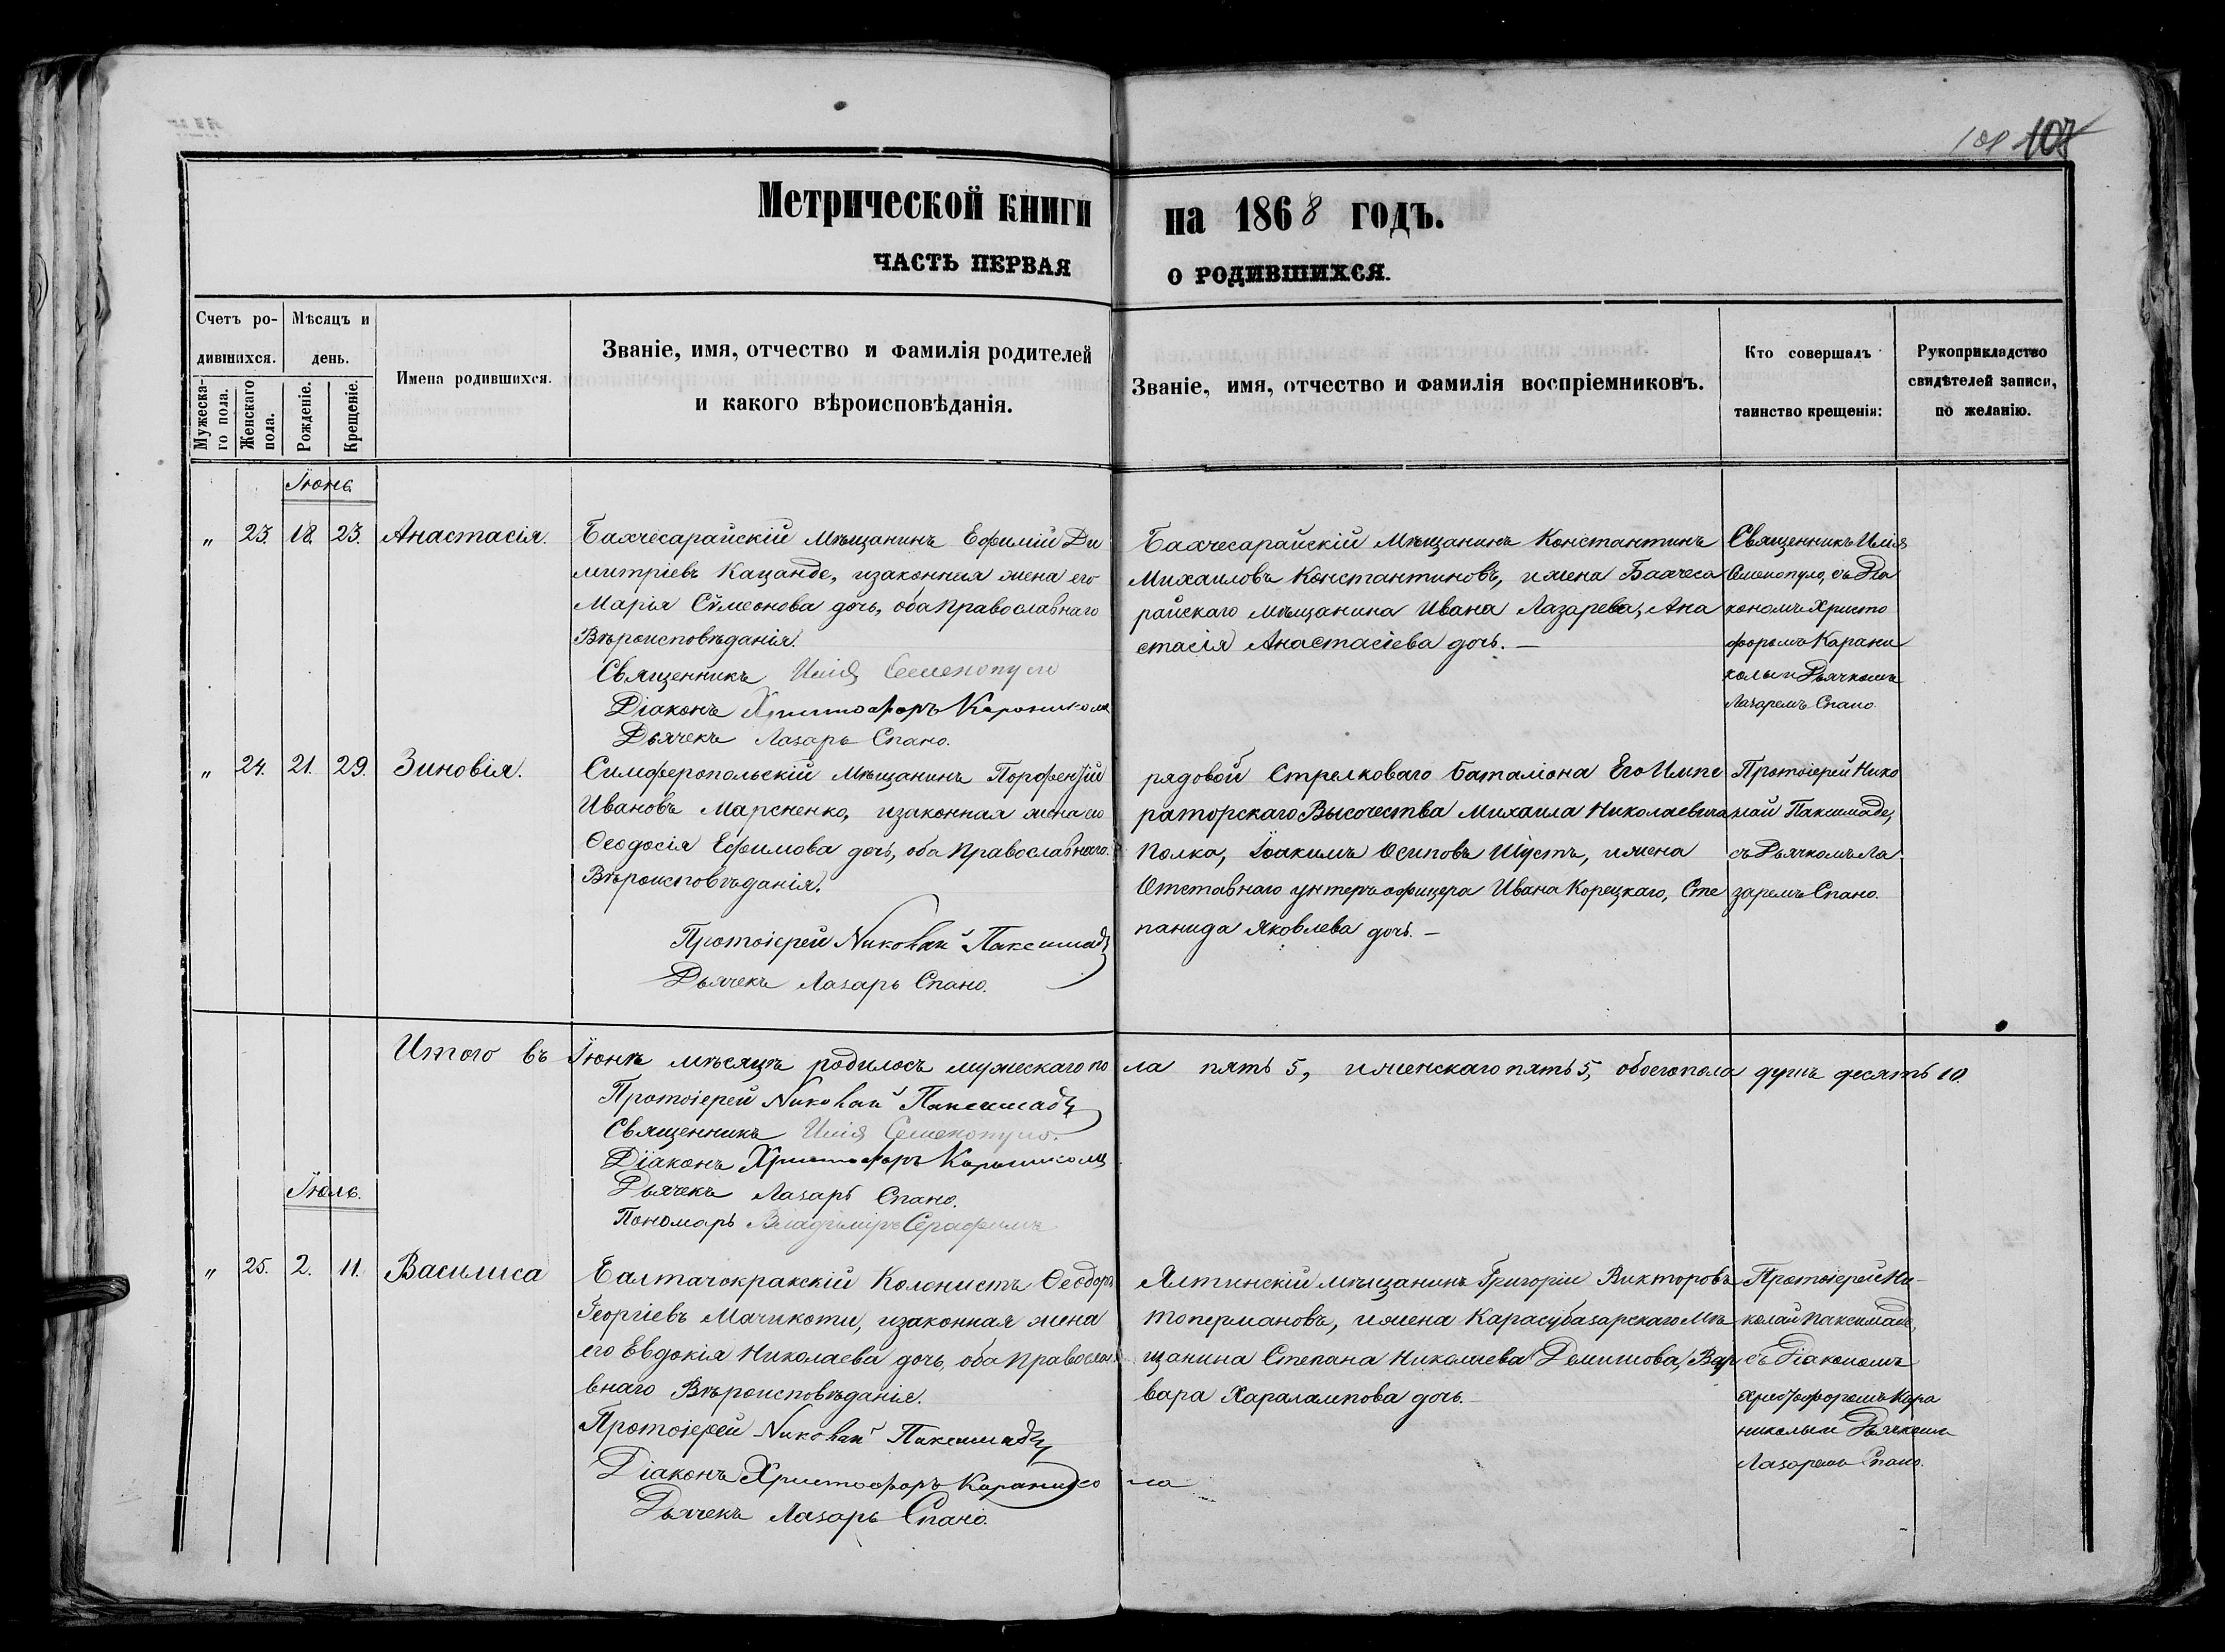 108
Метрической книги на 1868 годъ.
ЧАСТЬ ПЕРВАЯ о РОДИВШИХСЯ.
Счетъ родившихся.
Мужескаго пола.
Женскаго пола.
Мѣсяцъ и день.
Рожденіе.
Крещеніе.
Имена родившихся.
Званіе, имя, отчество и фамилія родителей
и какого вѣроисповѣданія.
Званіе, имя, отчество и фамилія воспріемниковъ.
Кто совершалъ
таинство крещенія:
Рукоприкладство
свидѣтелей записи,
по желанію.
Іюнь
„ 23. 18. 23. Анастасія.
Бахчесарайскій Мѣщанинъ Ефимій Ди
митріевъ Кацанде, изаконная жена его
Марія Сѵмеонова дочь, оба Православнаго
Вѣроисповѣданія.
Священникъ Илія Семенопуло
Діаконъ Христофоръ Караникола
Дьячекъ Лазарь Спано.
Бахчесарайскій Мѣщанинъ Константинъ
Михаиловъ Константиновъ, ижена Бахчеса
райскаго мѣщанина Ивана Лазарева, Ана
стасія Анастасіева дочь. —
Священникъ Илія
Семенопуло, съ Діа
кономъ Христо
форомъ Карани
колы и Дьячкомъ
Лазаремъ Спано.
„ 24. 21. 29. Зиновія.
Симферопольскій Мѣщанинъ Порфентій
Ивановъ Марененко, изаконная жена его
Ѳеодосія Ефимова дочь, оба Православнаго
Вѣроисповѣданія.
Протоіерей Николай Паксимадъ
Дьячекъ Лазарь Спано.
рядовой Стрелковаго Баталіона Его Импе
раторскаго Высочества Михаила Николаевича
Полка, Іоакимъ Осиповъ Шустъ, ижена
Отставнаго унтеръ офицера Ивана Корецкаго, Сте
панида Яковлева дочь. —
Протоіерей Нико
лай Паксимаде,
съ Дьячкомъ Ла
заремъ Спано.
Итого въ Іюнѣ мѣсяцѣ родилось мужескаго по ла пять 5, иженскаго пять 5, обоегопола душъ десять 10.
Протоіерей Николай Паксимадъ
Священникъ Илія Семенопуло.
Діаконъ Христофоръ Караникола
Дьячекъ Лазарь Спано.
Пономарь Владиміръ Серафимъ
Іюль.
„ 25. 2. 11. Василиса
Балтачокракскій Колонистъ Ѳеодоръ
Георгіевъ Мачикоти, изаконная жена
его Евдокія Николаева дочь, оба Правосла
внаго Вѣроисповѣданія.
Протоіерей Николай Паксимадъ
Діаконъ Христофоръ Каранико ла
Дьячекъ Лазарь Спано.
Ялтинскій мѣщанинъ Григорій Викторовъ
Топермановъ, ижена Карасубазарскаго Мѣ
щанина Степана Николаева Демишова, Вар
вара Харалампова дочь. —
Протоіерей Ни-
колай Паксимаде,
съ Діакономъ
Христофоромъ Кара
николы и Дьячкомъ
Лазаремъ Спано.